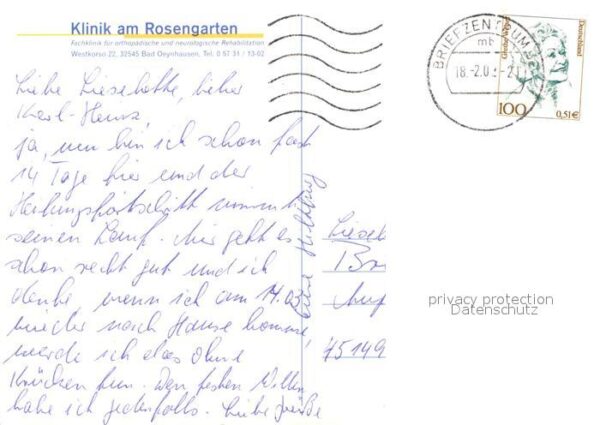 Klinik am Rosengarten
Fachklinik für orthopädische und neurologische Rehabilitation
Westkorso 22, 32545 Bad Oeynhausen, Tel. 0 57 31 / 13-02
BRIEFZENTRUM
mb
18.-2.0
Deutschland
100
0,51€
Liebe Lieselotte, lieber
Karl-Heinz,
ja, nun bin ich schon fast
14 Tage hier und der
Heilungsfortschritt nimmt
seinen Lauf. Mir geht es
schon recht gut und ich
denke, wenn ich am 14.03
wieder nach Hause komme,
werde ich das ohne
Krücken tun. Den festen Willen
habe ich jedenfalls. Liebe Grüße
Eure
Liesel
75149
privacy protection
Datenschutz